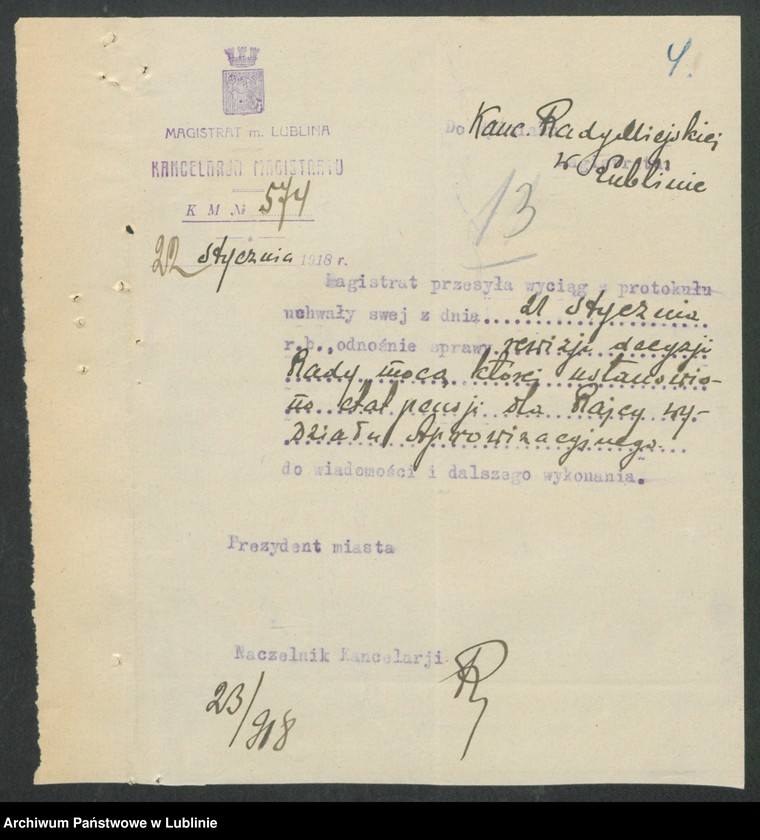 4.
MAGISTRAT m. LUBLINA
KANCELARJA MAGISTRATU
K M № 574
22 stycznia 1918 r.
Do Kanc. Rady Miejskiej
w Lublinie
13
Magistrat przesyła wyciąg z protokułu
uchwały swej z dnia 21 stycznia
r.b., odnośnie sprawy rewizji decyzji
Rady, mocą której ustanowio-
no etat pensji dla Rajcy Wy-
działu Aprowizacyjnego
do wiadomości i dalszego wykonania.
Prezydent miasta
Naczelnik Kancelarji
23/918
Archiwum Państwowe w Lublinie